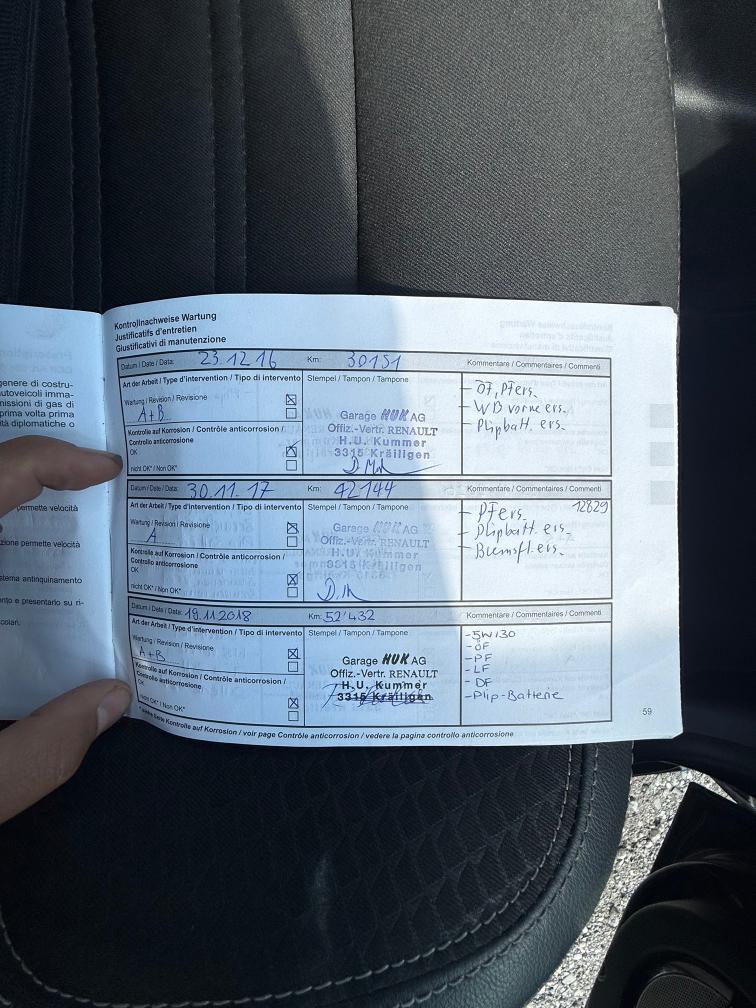 genere di costru-
utoveicoli imma-
missioni di gas di
prima volta prima
tà diplomatiche o
permette velocità
zione permette velocità
stema antinquinamento
nto e presentarlo su ri-
colari.
Kontrollnachweise Wartung
Justificatifs d'entretien
Giustificativi di manutenzione
Datum / Date / Data: 23.12.16 Km: 30151 Kommentare / Commentaires / Commenti
Art der Arbeit / Type d'intervention / Tipo di intervento Stempel / Tampon / Tampone
Wartung / Revision / Revisione
A+B
Kontrolle auf Korrosion / Contrôle anticorrosion /
Controllo anticorrosione
OK
nicht OK* / Non OK*
Garage HUK AG
Offiz.-Vertr. RENAULT
H.U. Kummer
3315 Kräiligen
- ÖF, PF ers.
- WB vorne ers.
- Plipbatt. ers.
Datum / Date / Data: 30.11.17 Km: 42144 Kommentare / Commentaires / Commenti
Art der Arbeit / Type d'intervention / Tipo di intervento Stempel / Tampon / Tampone
Wartung / Revision / Revisione
A
Kontrolle auf Korrosion / Contrôle anticorrosion /
Controllo anticorrosione
OK
nicht OK* / Non OK*
Garage HUK AG
Offiz.-Vertr. RENAULT
H.U. Kummer
3315 Kräiligen
- PF ers. 12829
- Plipbatt. ers.
- Bremsfl. ers.
Datum / Date / Data: 19.11.2018 Km: 52'432 Kommentare / Commentaires / Commenti
Art der Arbeit / Type d'intervention / Tipo di intervento Stempel / Tampon / Tampone
Wartung / Revision / Revisione
A+B
Kontrolle auf Korrosion / Contrôle anticorrosion /
Controllo anticorrosione
OK
nicht OK* / Non OK*
Garage HUK AG
Offiz.-Vertr. RENAULT
H.U. Kummer
3315 Kräiligen
-5W/30
-ÖF
-PF
-LF
-DF
-Plip-Batterie
Seite Kontrolle auf Korrosion / voir page Contrôle anticorrosion / vedere la pagina controllo anticorrosione
59